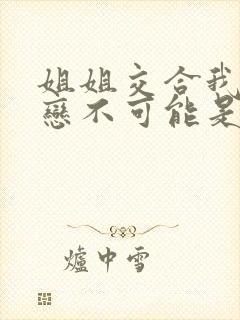 姐姐交合我
戀不可能是
爐中雪